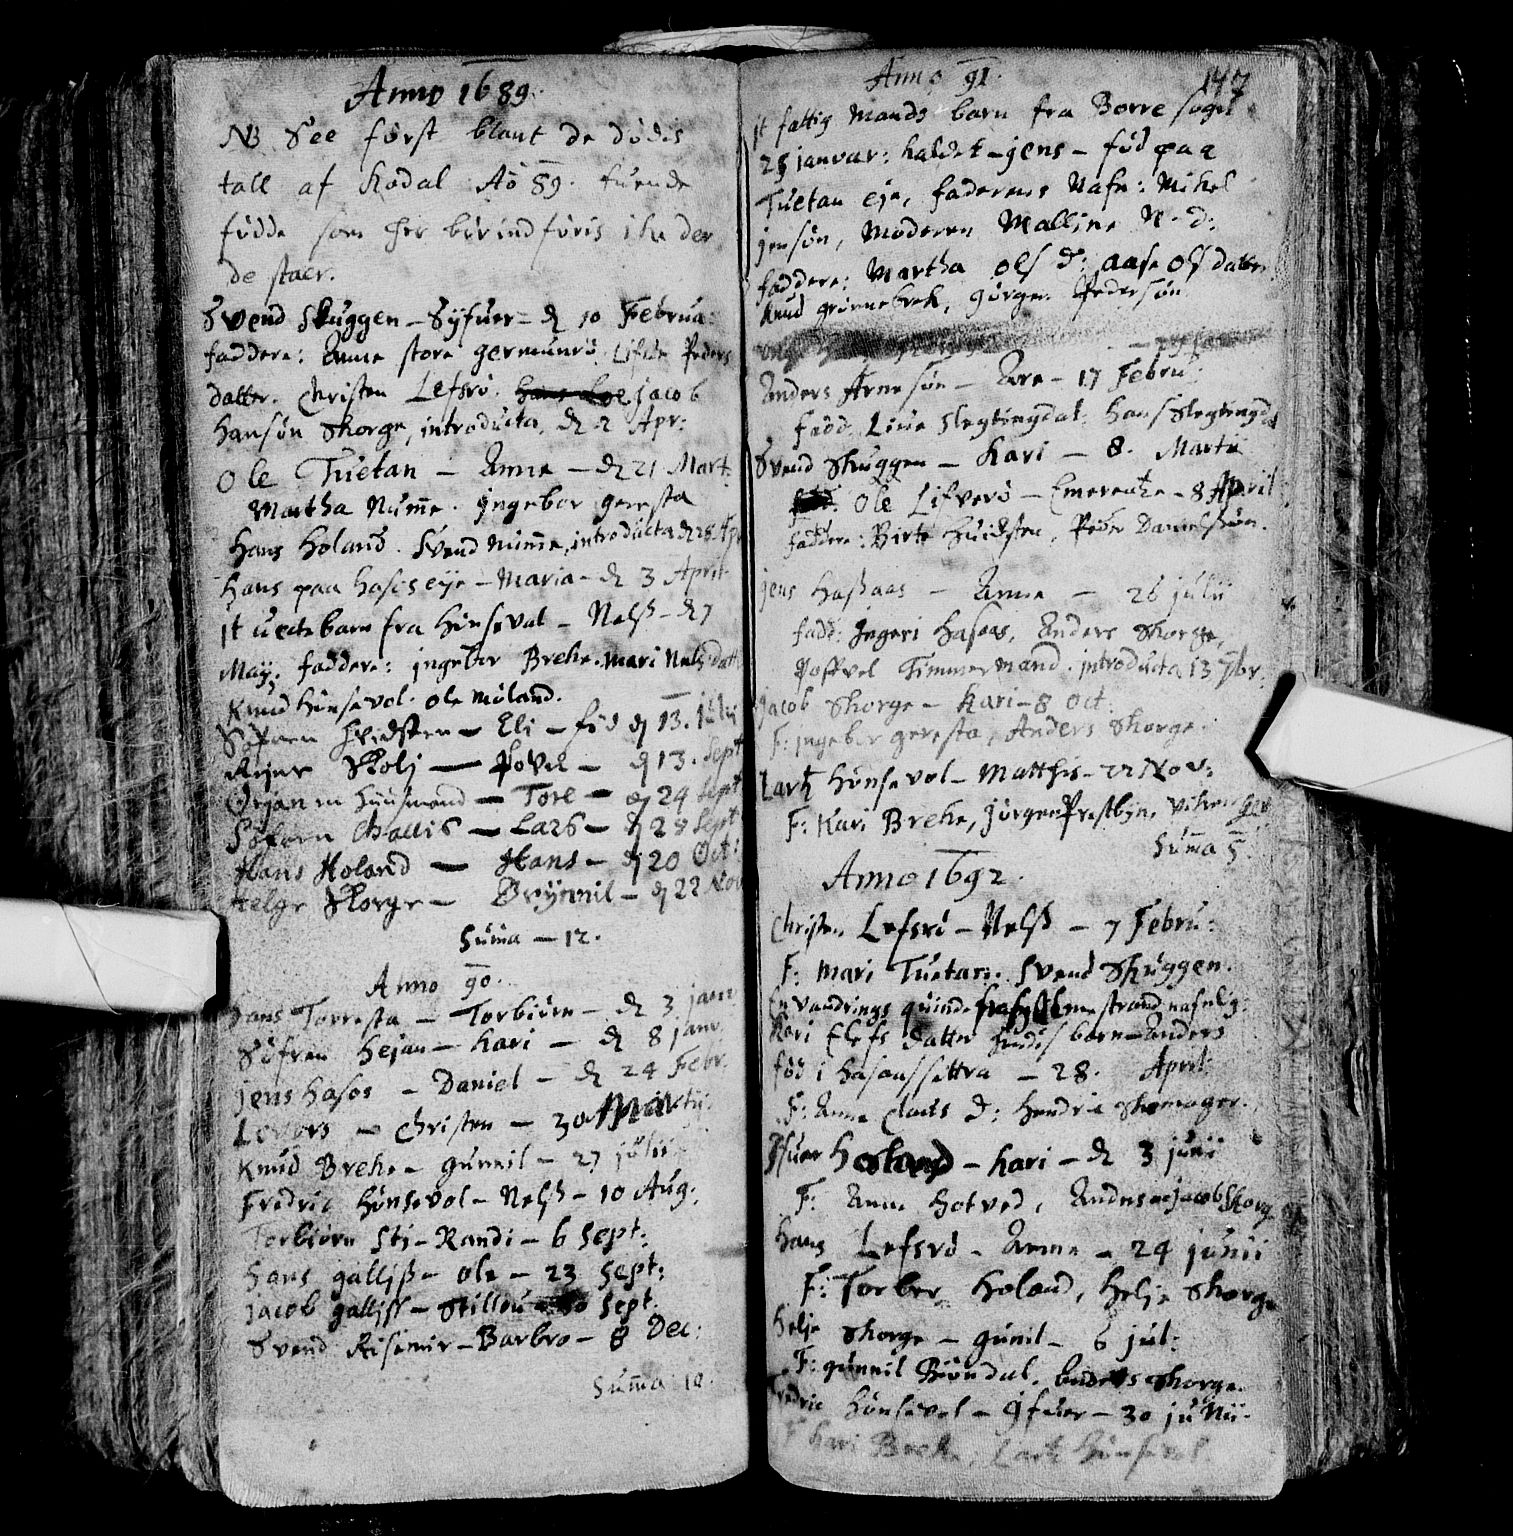 Anno 1689.
NB See först blant de dödis
tall af Kodal Ao 89. tuende
födde som her bör indföris ihu der
de staer.
Svend Skuggen – Syfuer – d 10 Februa:
faddere: Anne store germunrö. Lifue Peders
datter. Christen Lefsrö. jacob
hansön Skorge, introducta, d 2 Apr:
Ole Tuetan – Anne – d 21 Mart:
Martha Numme. Ingebor geresta
Hans Holand. Svend Numme, introducta d 28 Apr
Hans paa hasis eye – Maria – d 3 April
it uecte barn fra hönsevol – Nelss – d 7
May. faddere: ingebor Brehe. mari Nels datt
Knud hönsevol. ole möland.
Söfren hvidsten – Eli – föd d 13. julii
Rejer Skolj – Povel – d 13. Sept
Örjan en huusmand – Tore – d 24 Sept
Söfören Gallis – Lars – d 28 Sept
Hans Holand – Hans – d 20 Oct:
Helge Skorge – – d 22 Nov
Summa – 12.
Anno 90.
Hans Torresta – Torbiörn – d 3 janv
Söfren Hejan – Kari – d 8 janv.
jens hasos – Daniel – d 24 Febr.
Levers – Christen – 30 Martii
Knud Brehe – gunnil – 27 julii
Fredric Hönsevol – Nelss – 10 Aug:
Torbiörn Sti – Randi – 6 Sept:
Hans galliss – ole – 23 Sept:
jacob galliss – Sept.
Svend Risemir – Barbro – 8 Dec:
Summa 10.
Anno 91.
147
it fattig Mands barn fra Borre sogn
25 januar: haldet – jens – föd paa
Tuetan eje, faderens Nafn: Mikel
jensön, Moderen Malline N. d:
faddere: Martha Ols d: aase Ols datter
Knud grönnebrek, jörgen Pedersön.
Anders Arnesön – Are – 17 Febru:
fadd. Liue Slegtingdal. Hans Slegtingda
Svend Skuggen – Kari – 8. Martii
Ole Lifverö – Emerentze – 8 April
faddere: Birte Huidsten, Peder Danielssön.
jens hassaas – Anne – 26 julii
fadd: Ingeri hasaas, Anders Skorge,
Poffvel Timmermand. introducta 13 7br.
jacob Skorge – Kari – 8 Oct:
F: ingebor geresta, Anders Skorge.
Lartz hönsevol – Matthis – 22 Nov:
F: Kari Brehe, jörgen Prestbyn,
Summa 5.
Anno 1692.
Christen Lefsrö – Nelss – 7 Febru:
F: Mari Tuetan. Svend Skuggen.
En vandrings quinde nafnlig:
Kari Elefs datter hindis barn – Anders
föd i hasaassettra – 28. April:
F: Anne Claus d: Hendric Skomager.
Holand – Kari – d 3 junii
F: Anne Hotved, Anders jacob Skorg
Hans Lefsrö – Anne – 24 junii
F: Torber Holand, Helje Skorge
Helje Skorge – gunil – 6 jul:
F: gunnil Biöndal. Anders Skorge.
Fredric hönsevol – – 30 juNii
F Kari Brehe, Lartz hönsevol.